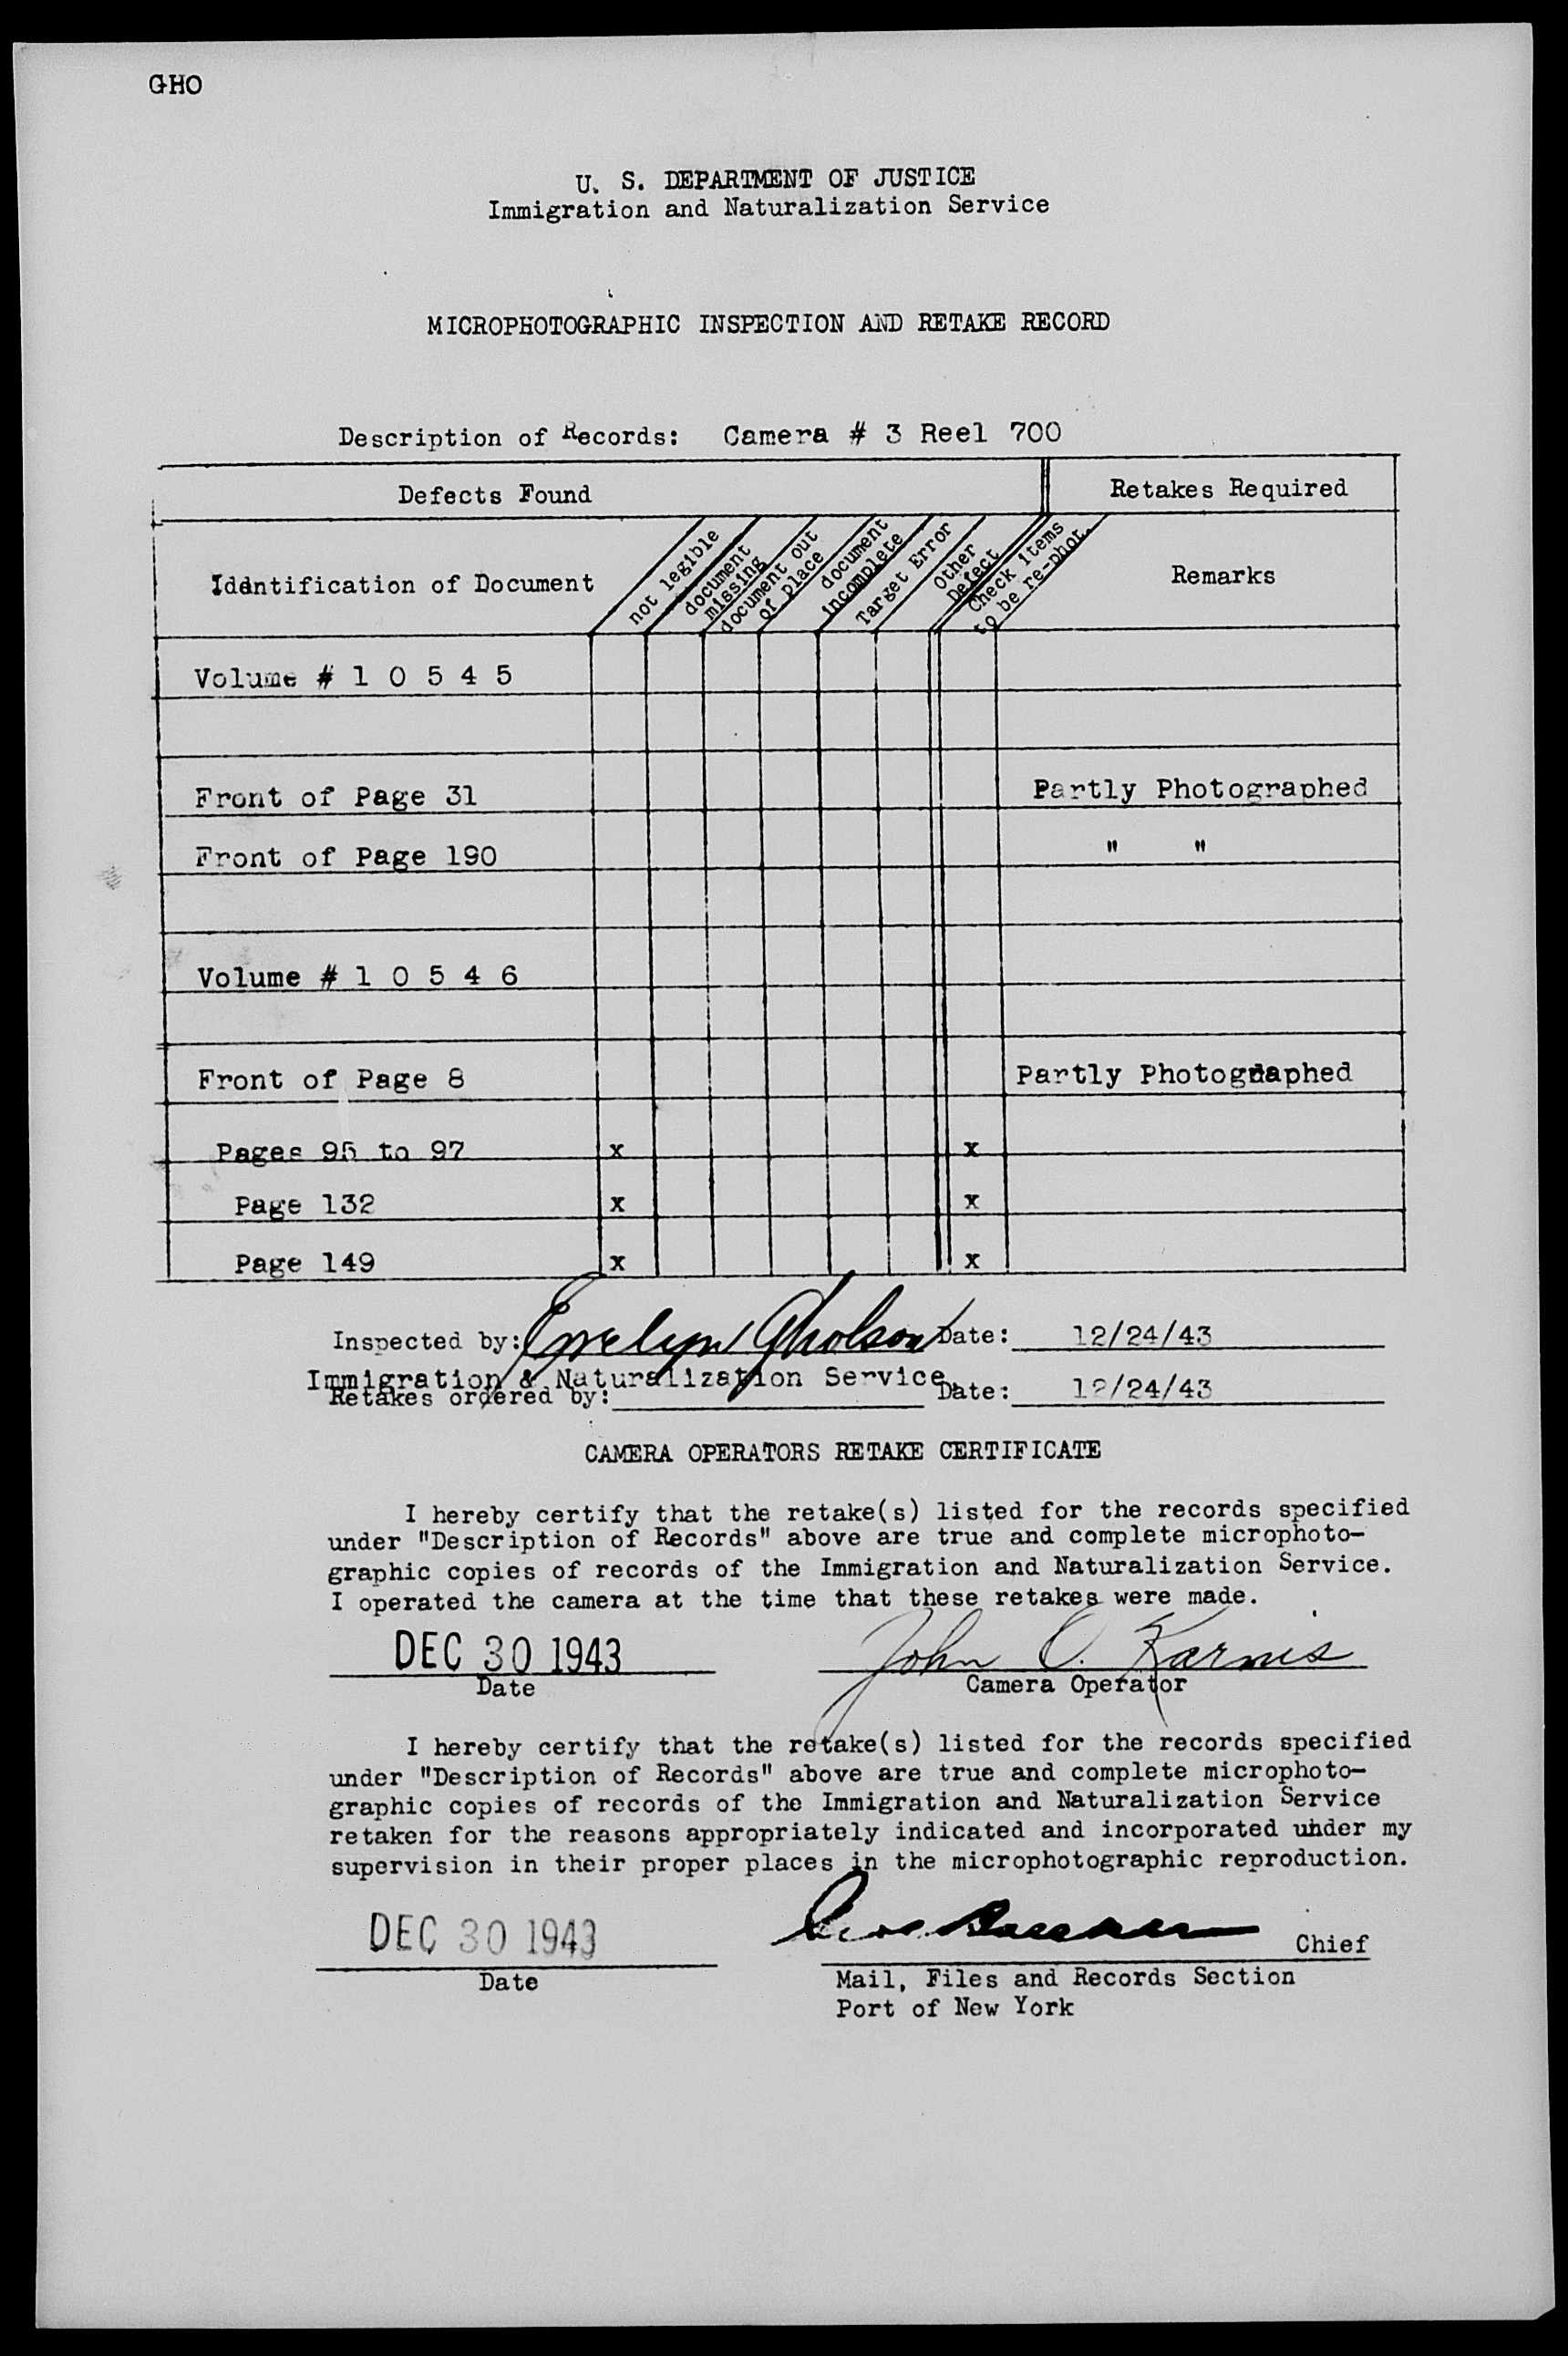 GHO
U. S. DEPARTMENT OF JUSTICE
Immigration and Naturalization Service
MICROPHOTOGRAPHIC INSPECTION AND RETAKE RECORD
Description of Records: Camera # 3 Reel 700
Defects Found
Retakes Required
Identification of Document
not legible
document missing
document out of place
document incomplete
Target Error
Other Defect
Check items to be re-phot.
Remarks
Volume # 1 0 5 4 5
Front of Page 31 Partly Photographed
Front of Page 190 " "
Volume # 1 0 5 4 6
Front of Page 8 Partly Photographed
Pages 95 to 97 x x
Page 132 x x
Page 149 x x
Inspected by: Evelyn Gholson Date: 12/24/43
Immigration & Naturalization Service.
Retakes ordered by: Date: 12/24/43
CAMERA OPERATORS RETAKE CERTIFICATE
I hereby certify that the retake(s) listed for the records specified
under "Description of Records" above are true and complete microphoto-
graphic copies of records of the Immigration and Naturalization Service.
I operated the camera at the time that these retakes were made.
DEC 30 1943 John O. Karnes
Date Camera Operator
I hereby certify that the retake(s) listed for the records specified
under "Description of Records" above are true and complete microphoto-
graphic copies of records of the Immigration and Naturalization Service
retaken for the reasons appropriately indicated and incorporated under my
supervision in their proper places in the microphotographic reproduction.
DEC 30 1943 Chief
Date Mail, Files and Records Section
Port of New York